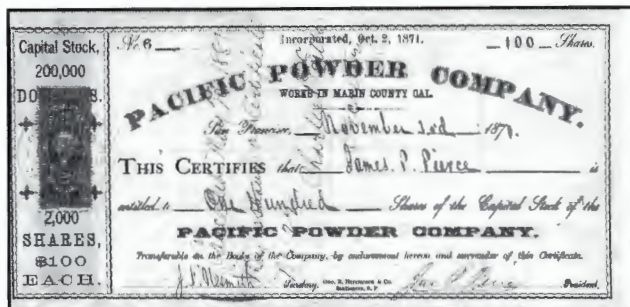 Capital Stock,
200,000
DOLLARS.
2,000
SHARES,
$100
EACH.
No. 6
Incorporated, Oct. 2, 1871.
100 Shares.
PACIFIC POWDER COMPANY.
WORKS IN MARIN COUNTY CAL.
San Francisco, November 3rd 1871.
THIS CERTIFIES that James. P. Pierce is
entitled to One Hundred Shares of the Capital Stock of the
PACIFIC POWDER COMPANY.
Transferable on the Books of the Company, by endorsement hereon and surrender of this Certificate.
Secretary.
President.